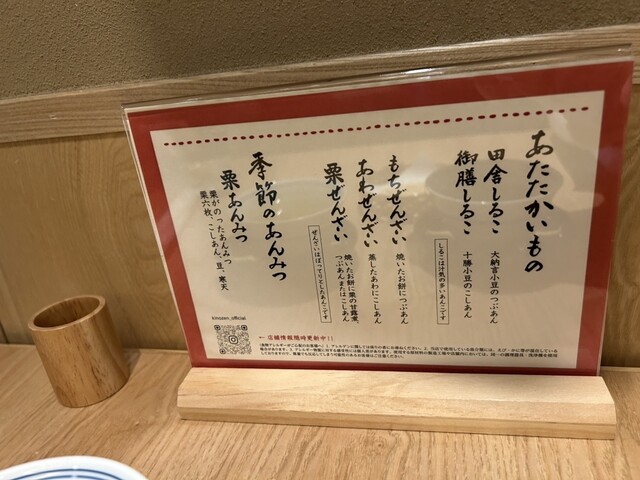 あたたかいもの
田舎しるこ 大納言小豆のつぶあん
御膳しるこ 十勝小豆のこしあん
しるこは汁気の多いあんこです
もちぜんざい 焼いたお餅につぶあん
あわぜんざい 蒸したあわにこしあん
栗ぜんざい 焼いたお餅に栗の甘露煮、
つぶあんまたはこしあん
ぜんざいはぽってりとしたあんこです
季節のあんみつ
栗あんみつ
栗がのったあんみつ
栗六枚、こしあん、豆、寒天
kinozen_official
← 店舗情報随時更新中！！